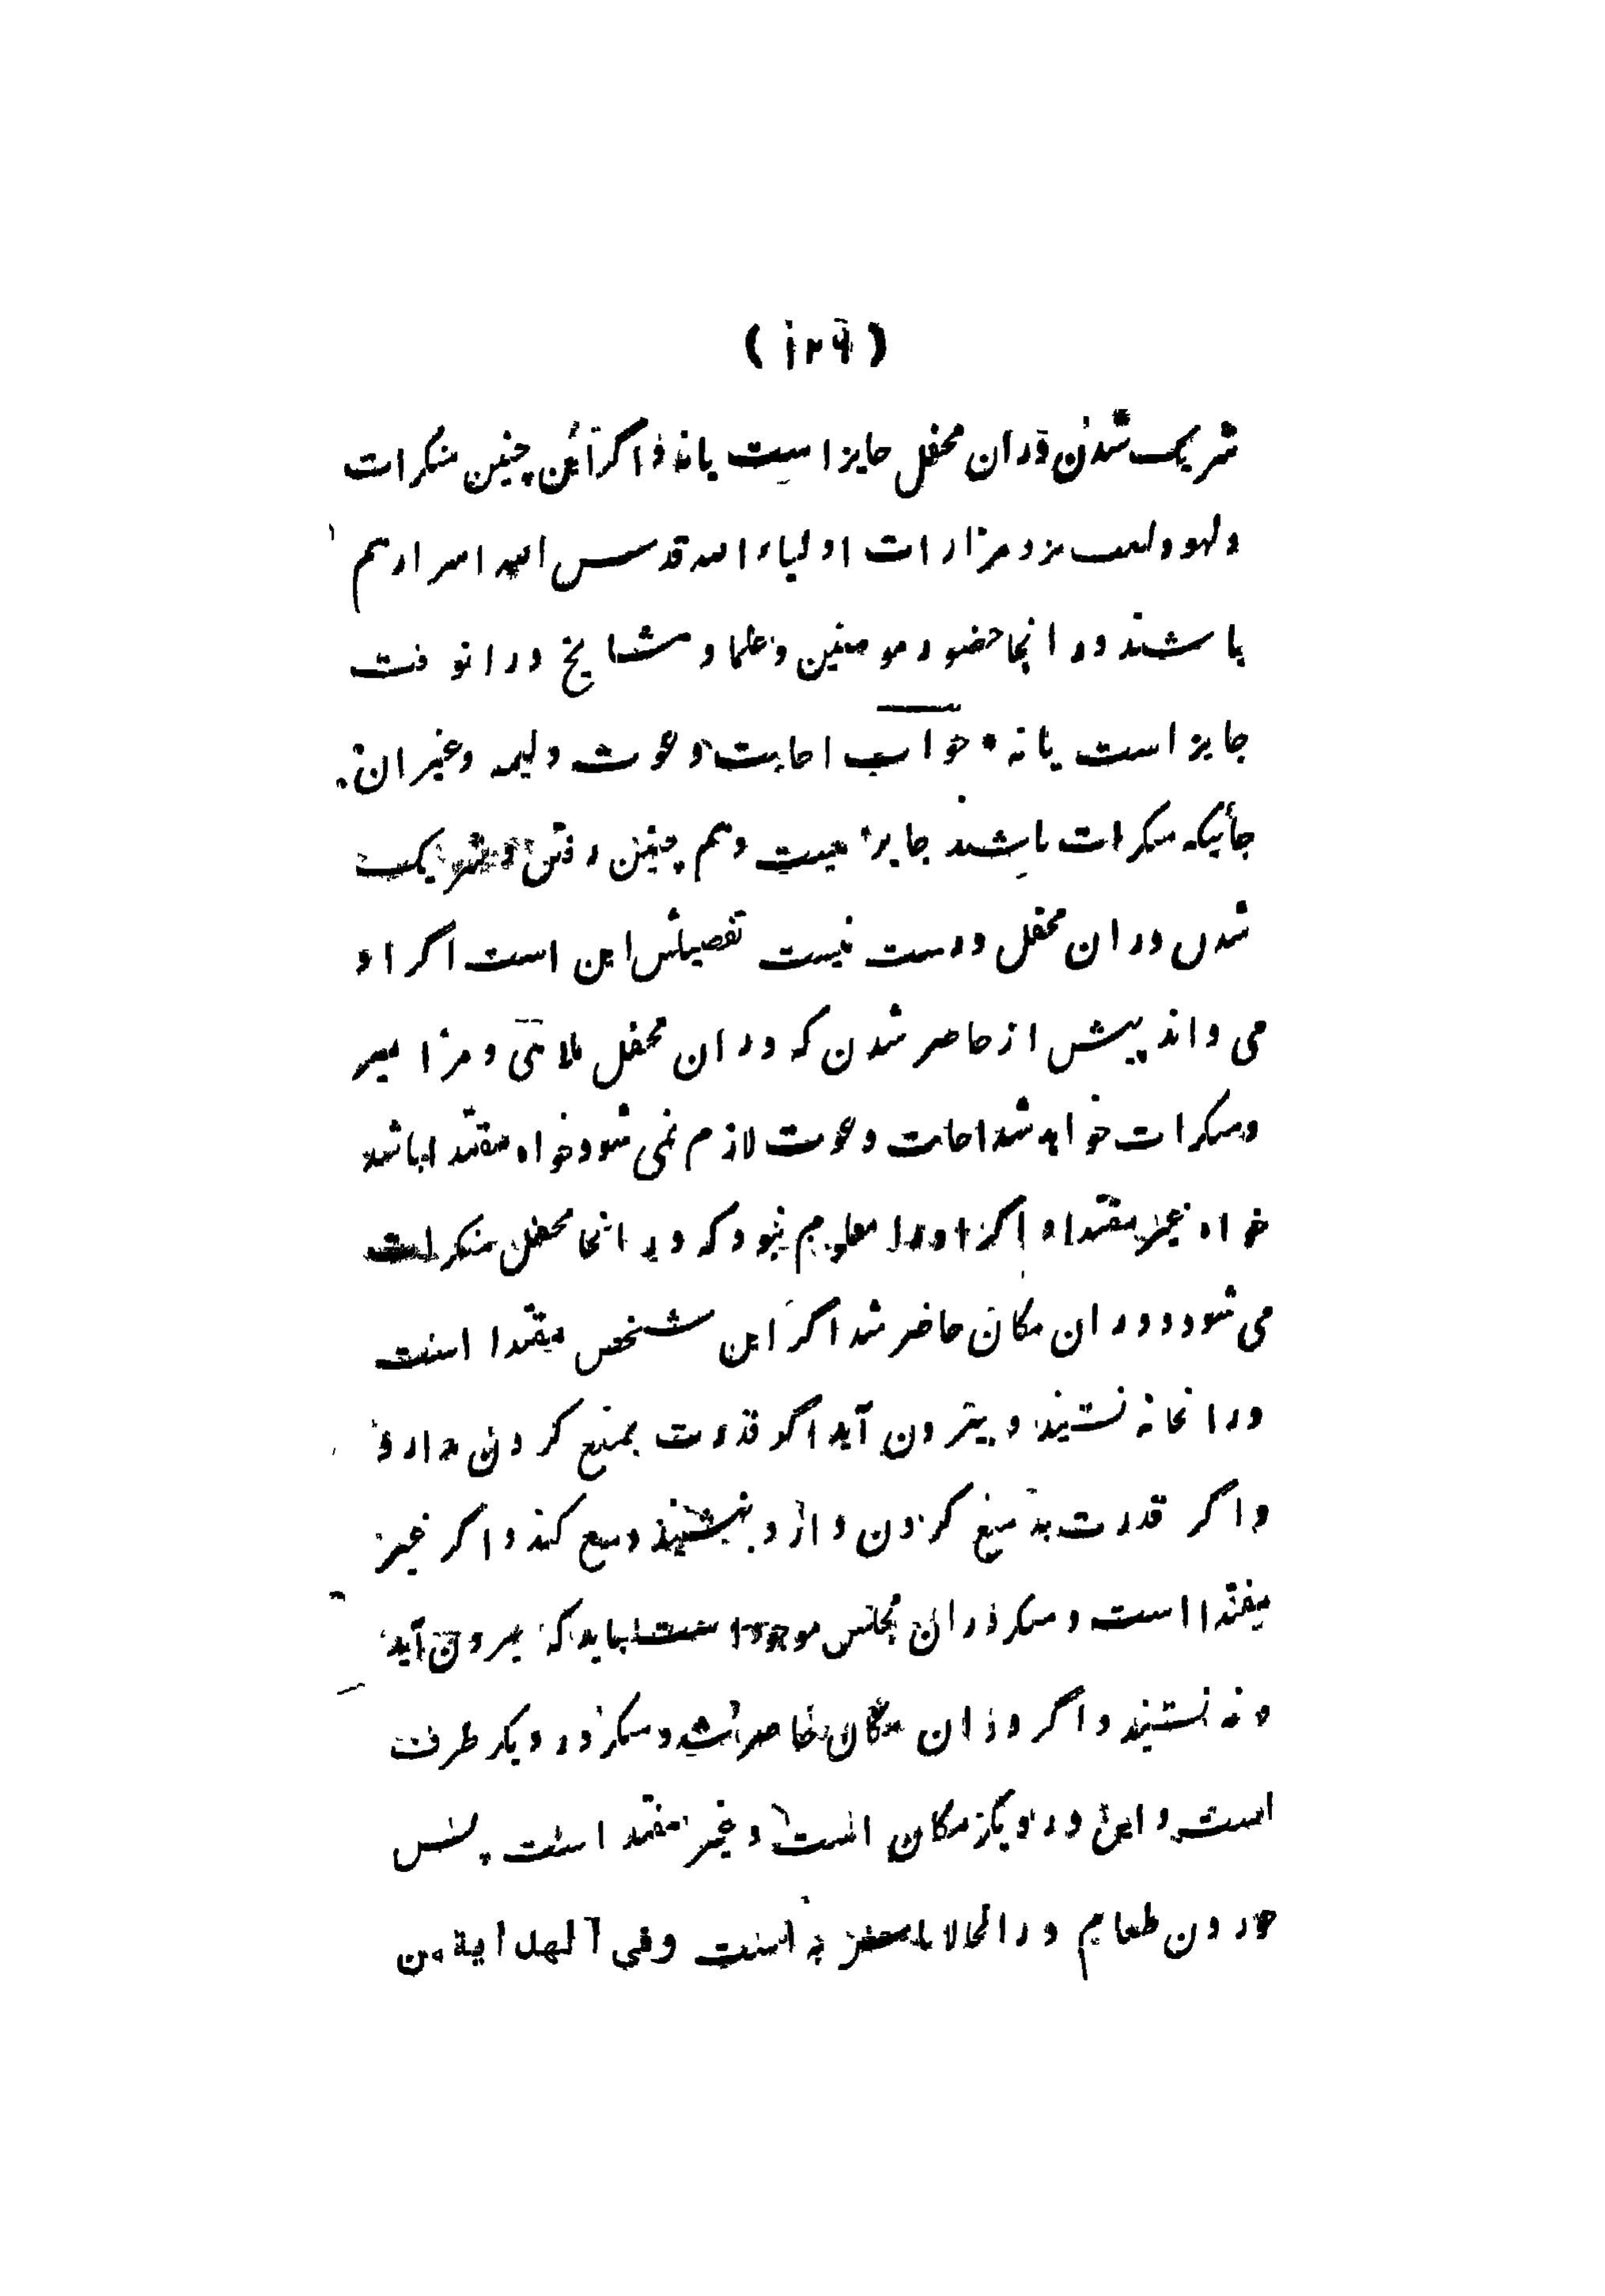 ( ۱۲۶ )
شریک شدن دران محفل جایز است یا نه و اگر این چنین منکرات
و لهو و لعب نزد مزارات اولیاء الله قدس الله اسرارهم
باشند در انجا حضور مومنین و علما و مشایخ در انوقت
جایز است یا نه * جواب اجابت دعوت ولیمه و غیران
جائیکه منکرات باشند جایز نیست و هم چنین رفتن و شریک
شدن دران محفل درست نیست تفصیلش این است اگر او
می داند پیش از حاضر شدن که دران محفل ملاهی و مزامیر
و منکرات خواهد شد اجابت دعوت لازم نمی شود خواه مقتدا باشد
خواه غیر مقتدا و اگر او را معلوم نبود که در انجا محفل منکرات
می شود و دران مکان حاضر شد اگر این شخص مقتدا است
در انخانه نشیند و بیرون آید اگر قدرت بمنع کردن ندارد
و اگر قدرت به منع کردن دارد بنشیند و منع کند و اگر غیر
مقتدا است و منکر دران مجلس موجود است باید که بیرون آید
و نه نشیند و اگر دران مکان حاضر شد و منکر در دیگر طرف
است و این در دیگر مکان است و غیر مقتدا است پس
خوردن طعام در انحالا است وفي الهداية من